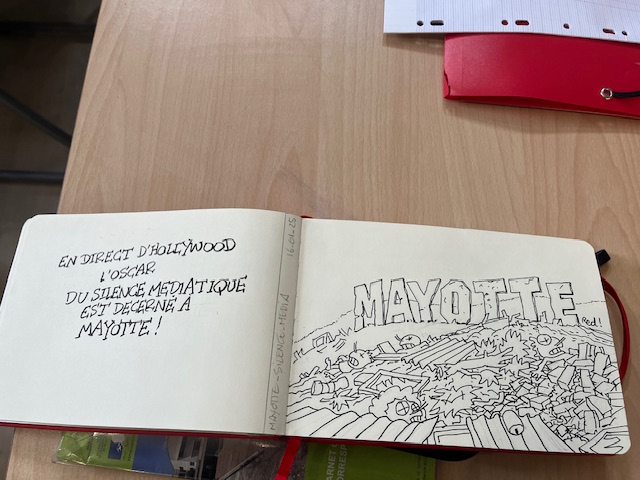 EN DIRECT D'HOLLYWOOD
L'OSCAR
DU SILENCE MEDIATIQUE
EST DECERNE A
MAYOTTE !
MAYOTTE-SILENCE-MEDIA
16-01-25
MAYOTTE